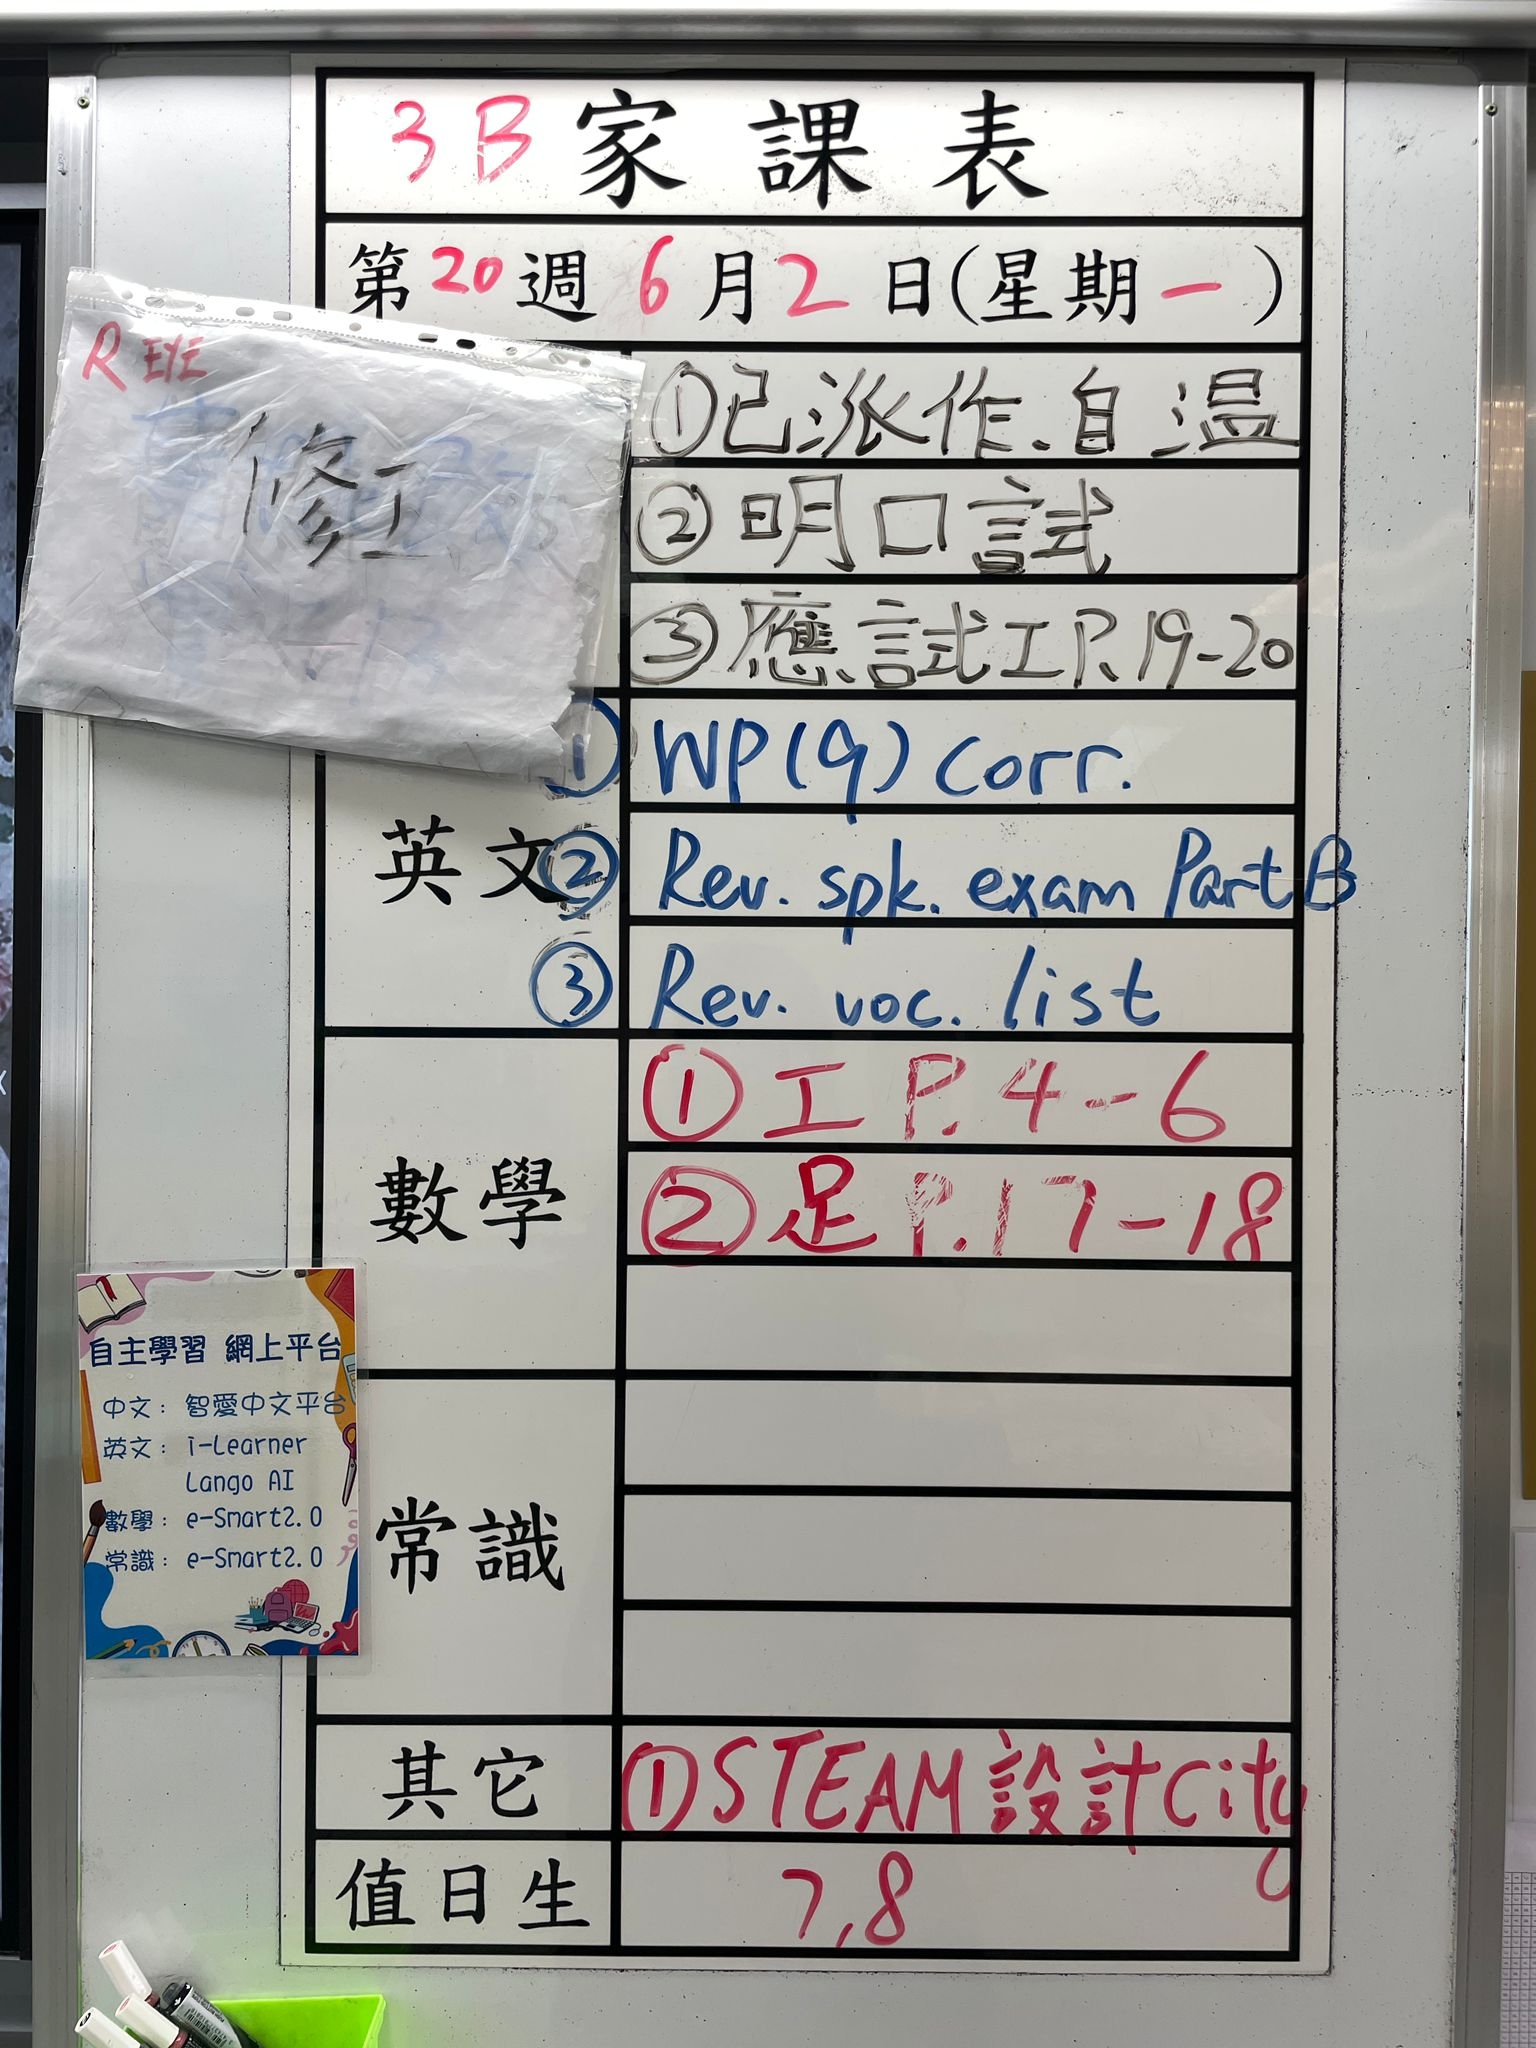 3B家課表
第20週6月2日(星期一)
R EYE
修工
①已派作、自溫
②明口試
③應試工P.19-20
英文
① WP(9) corr.
② Rev. spk. exam Part B
③ Rev. voc. list
數學
①工P.4-6
②足P.17-18
自主學習 網上平台
中文：智愛中文平台
英文：i-Learner
Lango AI
數學：e-Smart2.0
常識：e-Smart2.0
常識
其它
①STEAM設計City
值日生
7,8